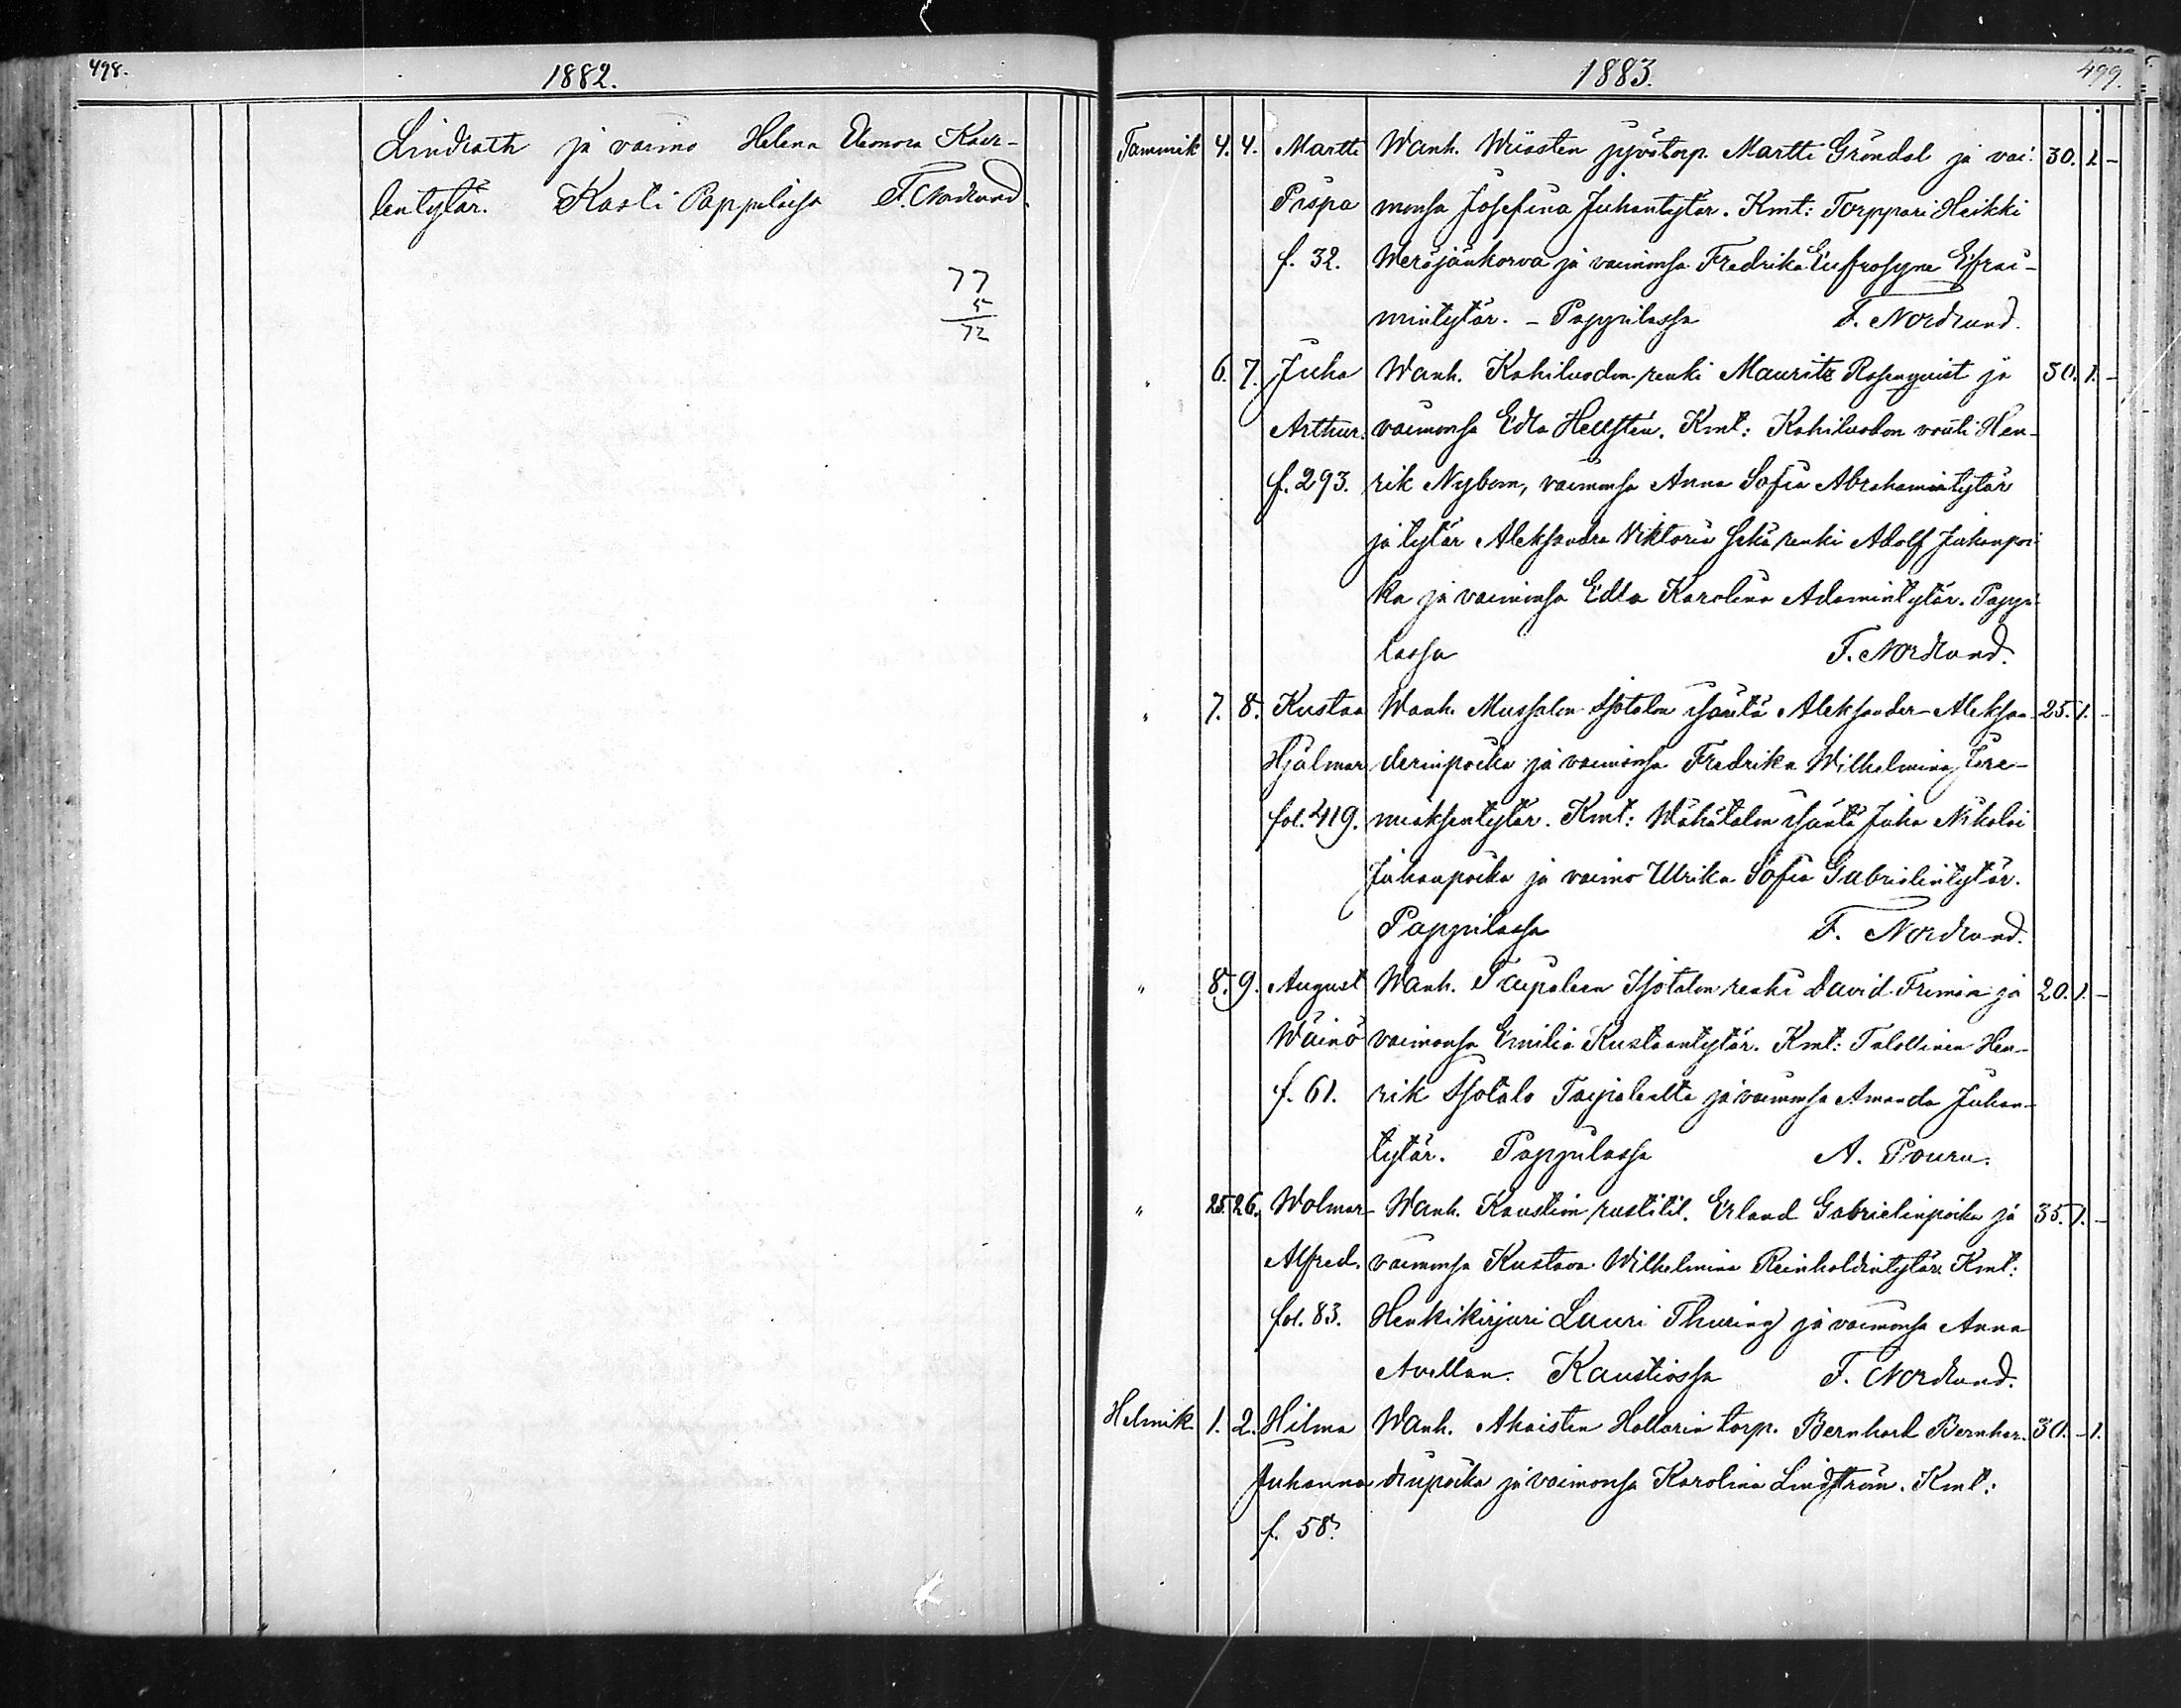 498.
1882.
Lindroth ja vaimo Helena Eleonora Kaar-
lentytär. Kasti Pappilassa F. Nordlund.
77
5
72
1883.
499.
Tammik 4. 4. Martti Wanh. jyvätorp. Martti Gröndal ja vai- 30. 1. -
Pispa monsa Josefina Juhantytär. Kmt: Torppari Heikki
f. 32. Weräjänkorva ja vaimonsa Fredrika Eufrosyne Efrai-
mintytär. - Pappilassa F. Nordlund.
" 6. 7. Juha Wanh. Kahiluodon renki Mauritz Rosenqvist ja 30. 1. -
Arthur. vaimonsa Edla Hellsten. Kmt: Kahiluodon vouti Hen-
f. 293. rik Nybom, vaimonsa Anna Sofia Abrahamintytär
ja tytär Aleksandra Viktoria sekä renki Adolf Juhanpoi-
ka ja vaimonsa Edla Karolina Adamintytär. Pappi-
lassa F. Nordlund.
" 7. 8. Kustaa Wanh. Mussalon Isotalon isäntä Aleksander Aleksan- 25. 1. -
Hjalmar derinpoika ja vaimonsa Fredrika Wilhelmina Jere-
fol. 419. miaksentytär. Kmt: Wähätalon isäntä Juha Nikolai
Juhanpoika ja vaimo Ulrika Sofia Gabrielintytär.
Pappilassa F. Nordlund.
" 8. 9. August Wanh. Taipaleen Isotalon renki David Friman ja 20. 1. -
Wäinö vaimonsa Emilia Kustaantytär. Kmt: Talollinen Hen-
f. 61. rik Isotalo Taipaleelta ja vaimonsa Amanda Juhan-
tytär. Pappilassa A. Pouru.
" 25. 26. Wolmar Wanh. Kaustion rustitil. Erland Gabrielinpoika ja 35. 1. -
Alfred. vaimonsa Kustava Wilhelmina Reinholdintytär. Kmt:
fol. 83. Henkikirjuri Lauri Thuring ja vaimonsa Anna
Avellan. Kaustiossa F. Nordlund.
Helmik 1. 2. Hilma Wanh. Ahaisten Hollarin torp. Bernhard Bernhar- 30. - 1.
Juhanna dinpoika ja vaimonsa Karolina Lindström. Kmt:
f. 58.